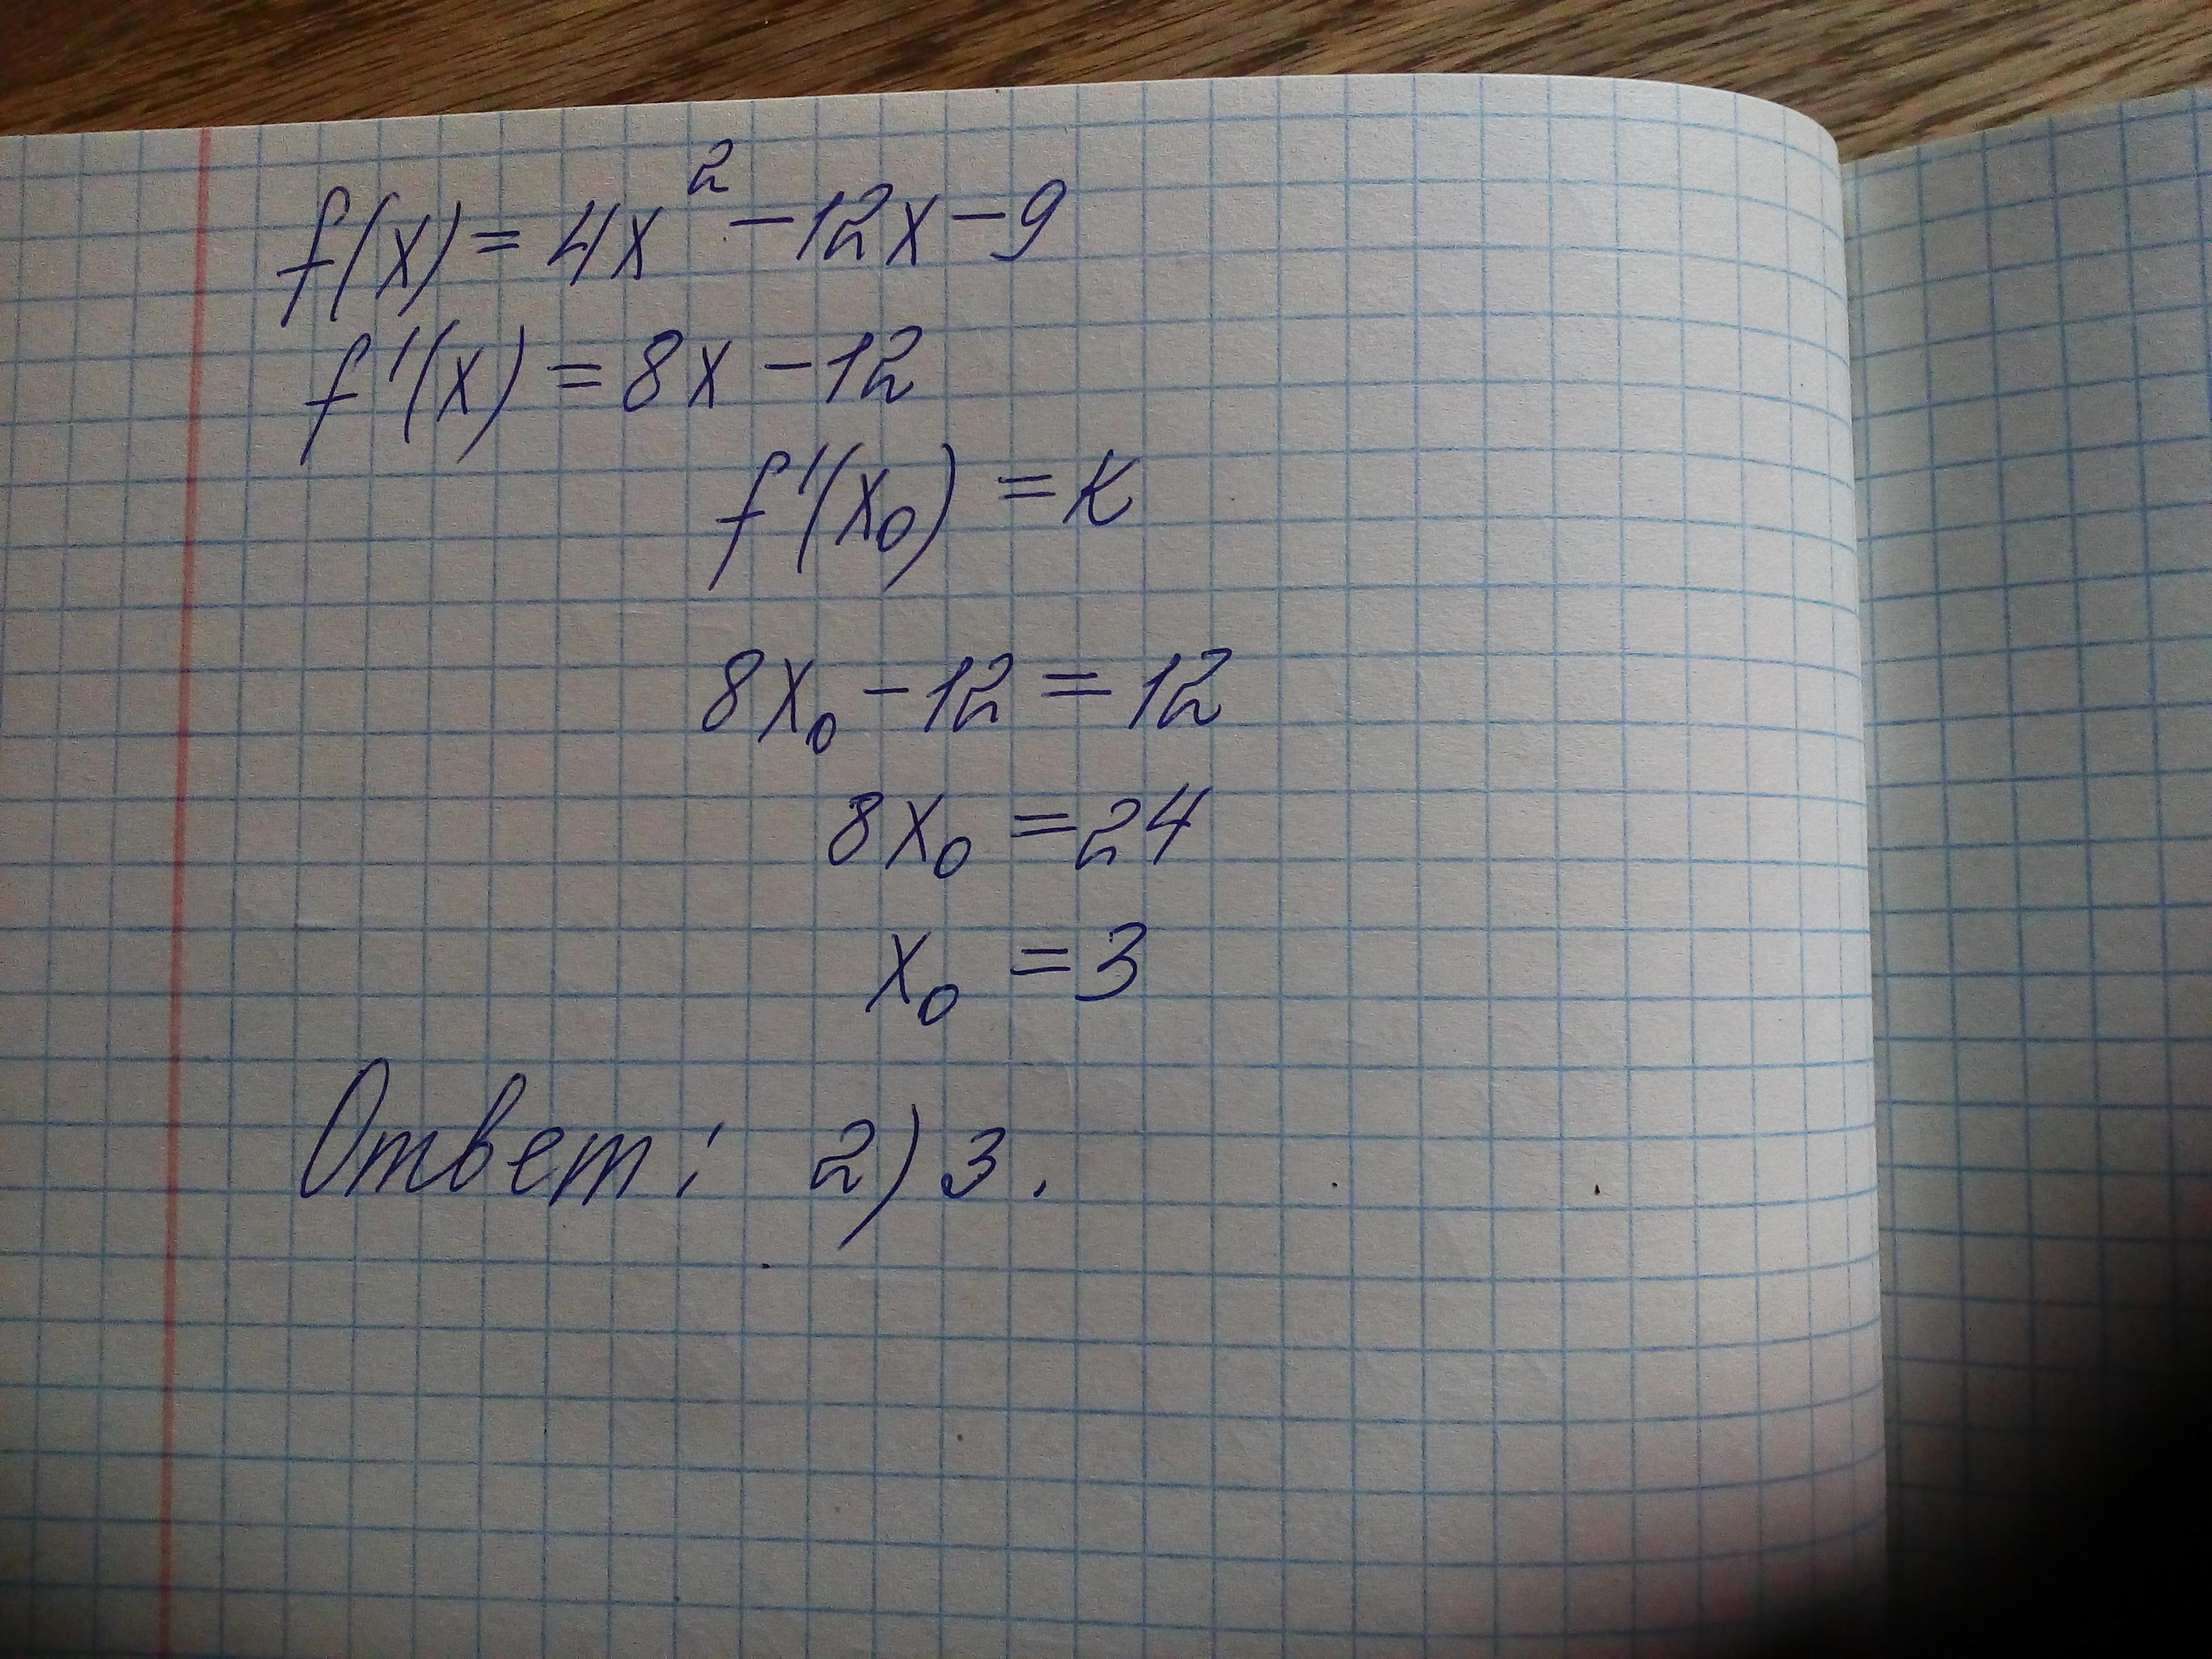 f(x) = 4x² - 12x - 9
f'(x) = 8x - 12
f'(x₀) = k
8x₀ - 12 = 12
8x₀ = 24
x₀ = 3
Ответ: 2) 3.